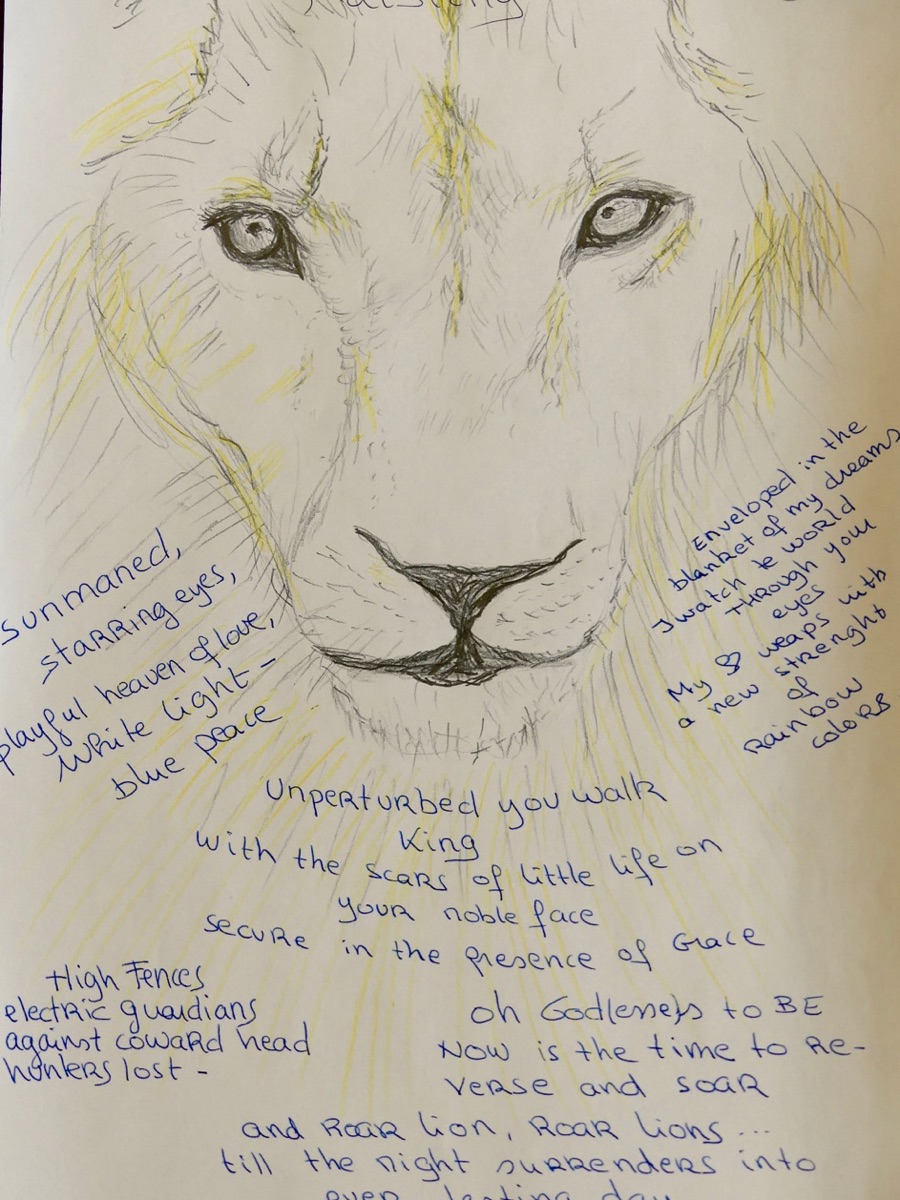 Sunmaned,
starring eyes,
playful heaven of love,
White light -
blue peace
Enveloped in the
blanket of my dreams
I watch te world
through your
eyes
My weaps with
a new strenght
of
Rainbow
colors
Unperturbed you walk
King
with the scars of little life on
your noble face
secure in the presence of Grace
High Fences
electric guardians
against coward head
hunters lost -
oh Godleness to BE
NOW is the time to Re-
verse and soar
and Roar lion, Roar lions ...
till the night surrenders into
ever lasting day